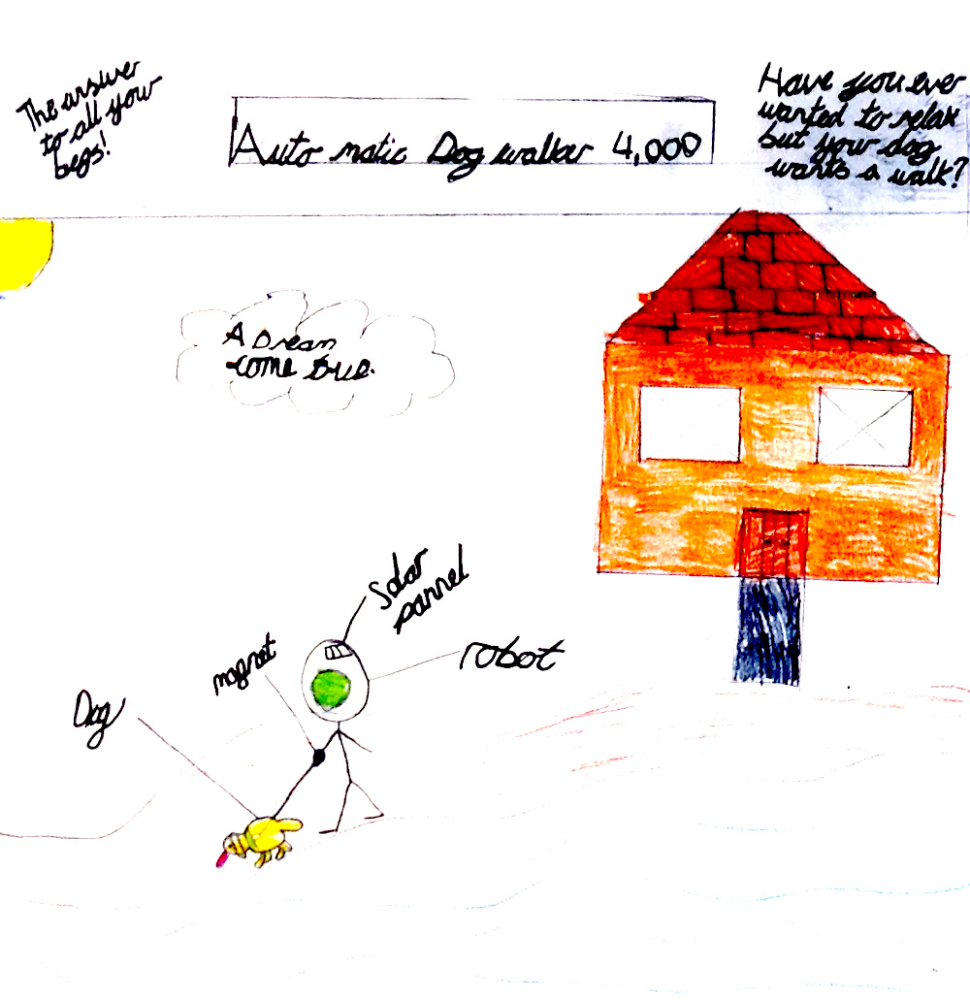 The answer
to all your
begs!
Auto matic Dog walker 4,000
Have you ever
wanted to relax
but your dog
wants a walk?
A Dream
come true.
Solar
pannel
magnet
robot
Dog